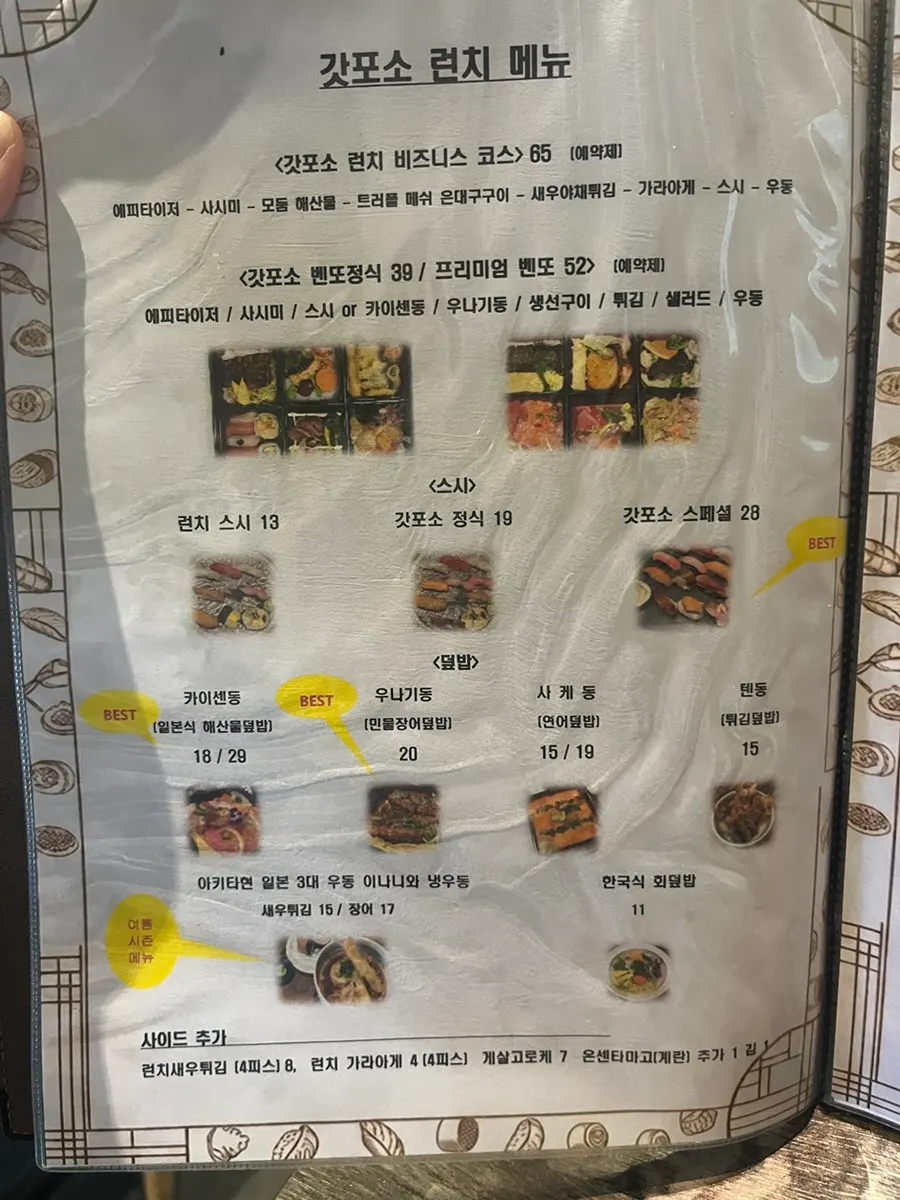 갓포소 런치 메뉴
<갓포소 런치 비즈니스 코스> 65 (예약제)
에피타이저 - 사시미 - 모둠 해산물 - 트러플 메쉬 은대구구이 - 새우야채튀김 - 가라아게 - 스시 - 우동
<갓포소 벤또정식 39 / 프리미엄 벤또 52> (예약제)
에피타이저 / 사시미 / 스시 or 카이센동 / 우나기동 / 생선구이 / 튀김 / 샐러드 / 우동
<스시>
런치 스시 13
갓포소 정식 19
갓포소 스페셜 28
BEST
<덮밥>
BEST
카이센동
(일본식 해산물덮밥)
18 / 29
BEST
우나기동
(민물장어덮밥)
20
사 케 동
(연어덮밥)
15 / 19
텐동
(튀김덮밥)
15
아키타현 일본 3대 우동 이나니와 냉우동
새우튀김 15 / 장어 17
여름
시즌
메뉴
한국식 회덮밥
11
사이드 추가
런치새우튀김 (4피스) 8, 런치 가라아게 4 (4피스) 게살고로케 7 온센타마고(계란) 추가 1 김 1